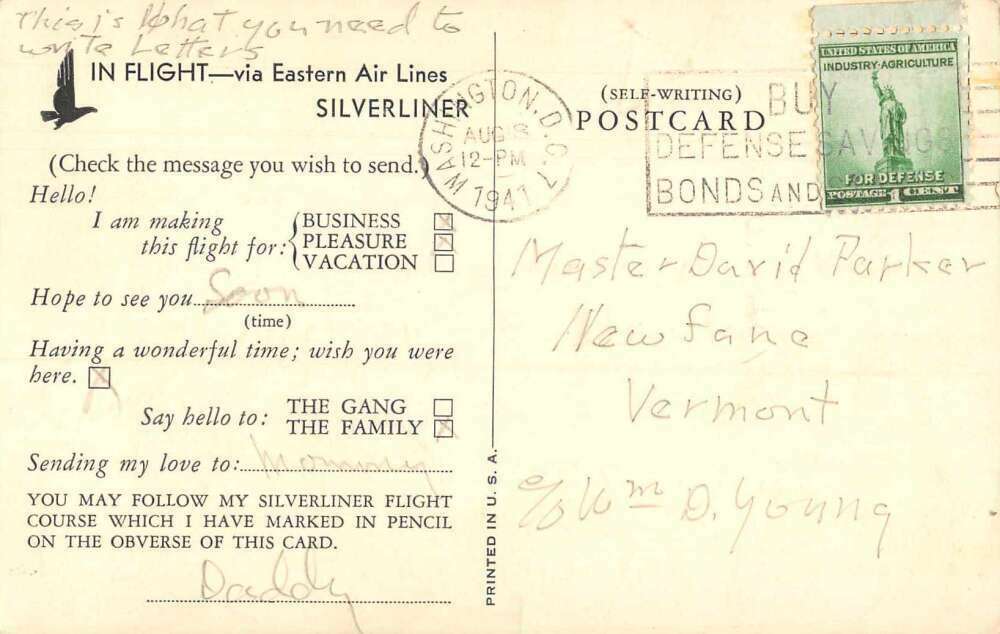 This is What you need to
write Letters
IN FLIGHT—via Eastern Air Lines
SILVERLINER
(Check the message you wish to send.)
Hello!
I am making
this flight for:
BUSINESS
PLEASURE
VACATION
Hope to see you Soon
(time)
Having a wonderful time; wish you were
here.
Say hello to:
THE GANG
THE FAMILY
Sending my love to: Mommy
YOU MAY FOLLOW MY SILVERLINER FLIGHT
COURSE WHICH I HAVE MARKED IN PENCIL
ON THE OBVERSE OF THIS CARD.
Daddy
PRINTED IN U. S. A.
WASHINGTON, D.C. 7
AUG 8
12-PM
1941
(SELF-WRITING)
POSTCARD
BUY
DEFENSE SAVINGS
BONDS AND
UNITED STATES OF AMERICA
INDUSTRY·AGRICULTURE
FOR DEFENSE
POSTAGE 1 CENT
Master David Parker
Newfane
Vermont
c/o Wm D. Young